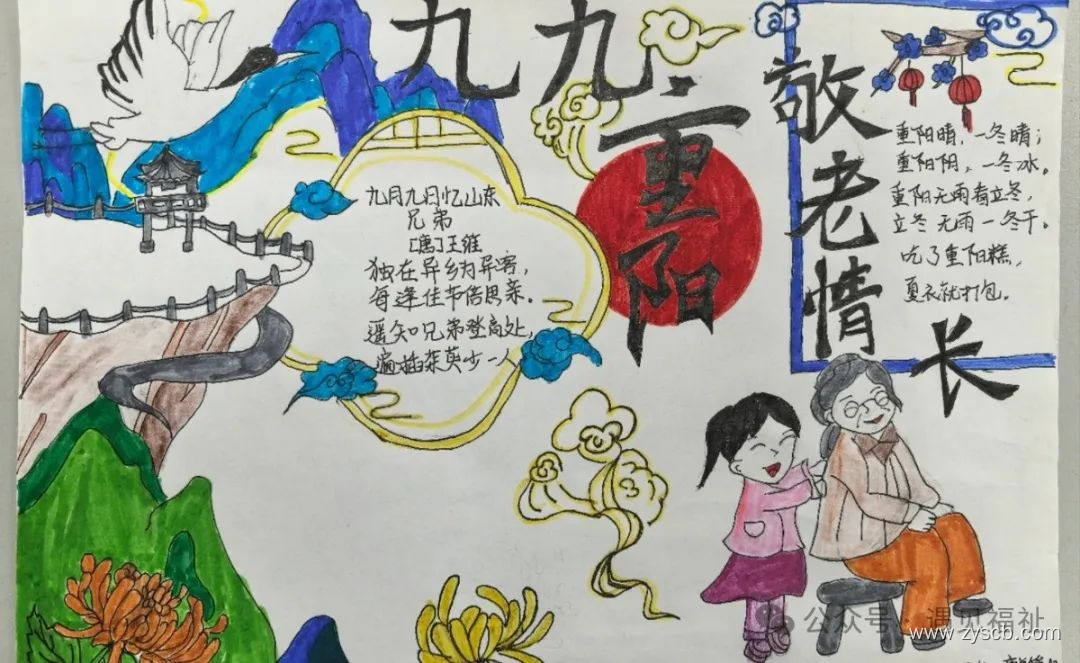 九九
重阳
敬老情长
九月九日忆山东
兄弟
[唐]王维
独在异乡为异客，
每逢佳节倍思亲。
遥知兄弟登高处，
遍插茱萸少一人
重阳晴，一冬晴；
重阳阴，一冬冰。
重阳无雨看立冬，
立冬无雨一冬干。
吃了重阳糕，
夏衣就打包。
公众号·遇见福祉
www.zyscb.com